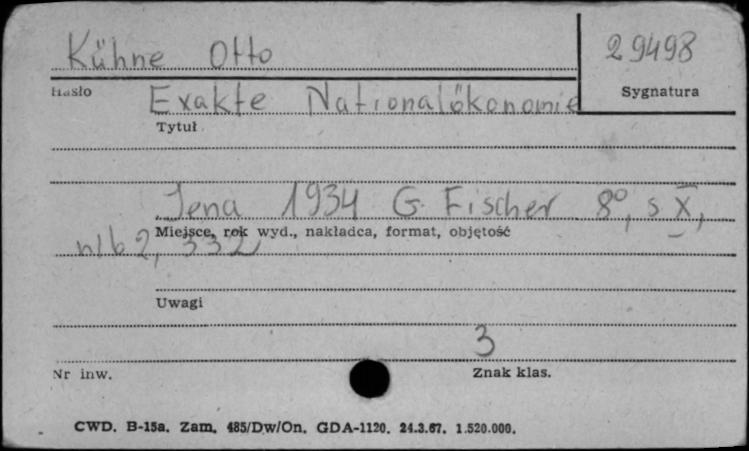 Kühne Otto
29498
Hasło
Sygnatura
Exakte Nationalökonomie
Tytuł
Jena 1934 G. Fischer 8°, s X,
Miejsce, rok wyd., nakładca, format, objętość
nlb 2, 332
Uwagi
3
Nr inw.
Znak klas.
CWD. B-15a. Zam. 485/Dw/On. GDA-1120. 24.3.67. 1.520.000.